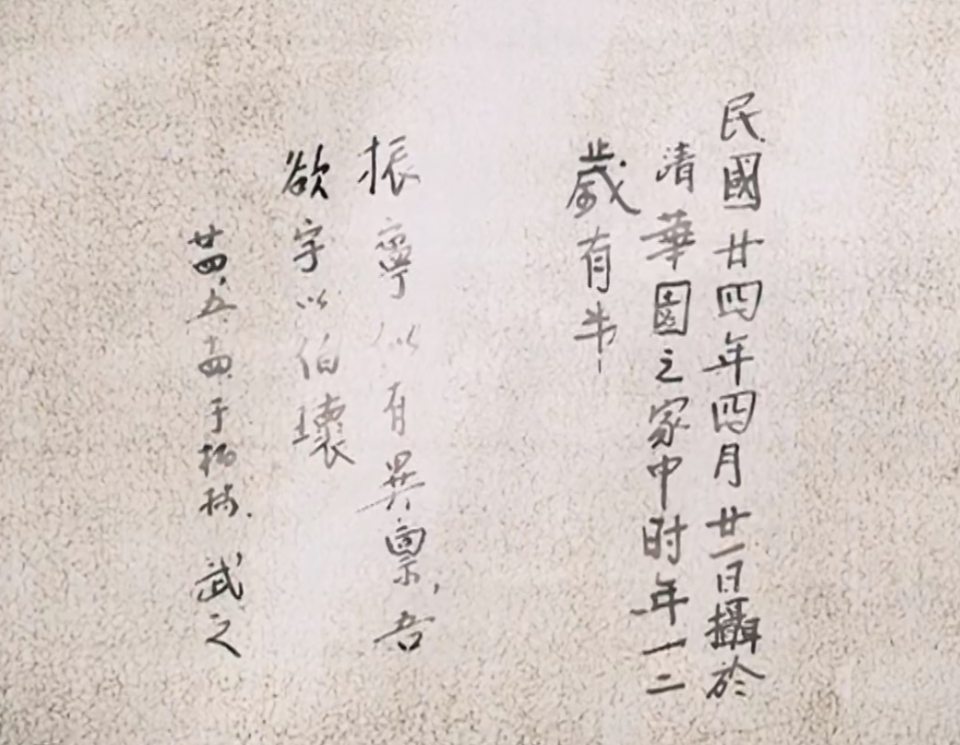 民國廿四年四月廿一日攝於
清華園之家中时年一二
歲有半
振寧似有異禀,吾
欲字以伯瓌
廿四,五,廿四.于柏林. 武之